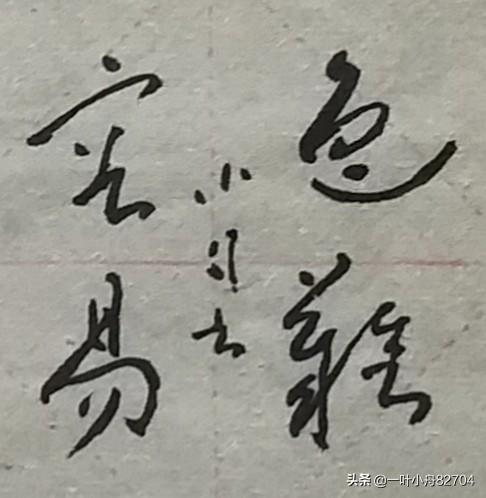 色難
容易
小月书
头条 @一叶小舟82704